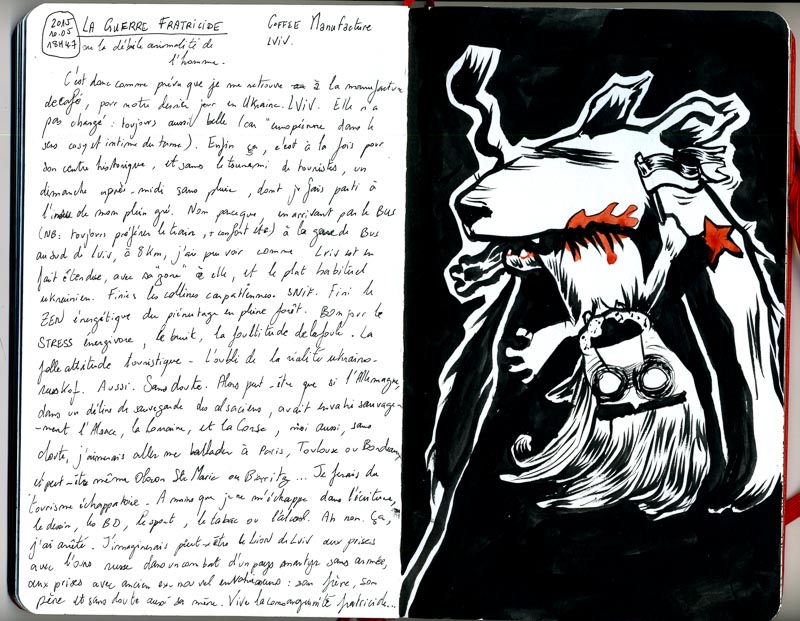 2015
10.05
18H47
LA GUERRE FRATRICIDE
ou la débile animalité de
l'homme.
COFFEE Manufacture
LVIV.
C'est donc comme prévu que je me retrouve à la manufacture
de café, pour notre dernier jour en Ukraine. LVIV. Elle n'a
pas changé : toujours aussi belle (car "européenne" dans le
sens cosy et intime du terme). Enfin ça, c'est à la fois pour
son centre historique, et sans le tournis de touristes, un
dimanche après-midi sans pluie, dont je fais parti à
l'insu de mon plein gré. Non parceque, en arrivant par le BUS
(NB: toujours préférer le train, + confort etc) à la gare de Bus
au sud de Lviv, à 8km, j'ai pu voir comme Lviv est en
fait étendue, avec sa "zone" à elle, et le plat habituel
ukrainien. Finies les collines carpatiennes. SNIF. Fini le
ZEN énergétique du piénutage en pleine forêt. Bonjour le
STRESS énergivore, le bruit, la foultitude de la foule. La
folle attitude touristique - L'oubli de la réalité ukraino-
russkof. Aussi. Sans doute. Alors peut-être que si l'Allemagne,
dans un délire de sauvegarde des alsaciens, avait envahi sauvage-
-ment l'Alsace, la Lorraine, et la Corse, moi aussi, sans
doute, j'aimerais aller me ballader à Paris, Toulouse ou Bordeaux,
et peut-être même Oloron Ste Marie ou Biarritz... Je ferais du
tourisme échappatoire. A moins que je ne m'échappe dans l'écriture,
le dessin, les BD, le sport, le tabac ou l'alcool. Ah non. Ça,
j'ai arrêté. J'imaginerais peut-être le lion de Lviv aux prises
avec l'ours russe dans un combat d'un pays martyr sans armée,
aux prises avec ancien ex-nouvel envahisseur : son frère, son
père et sans doute aussi sa mère. Vive la consanguinité fratricide...